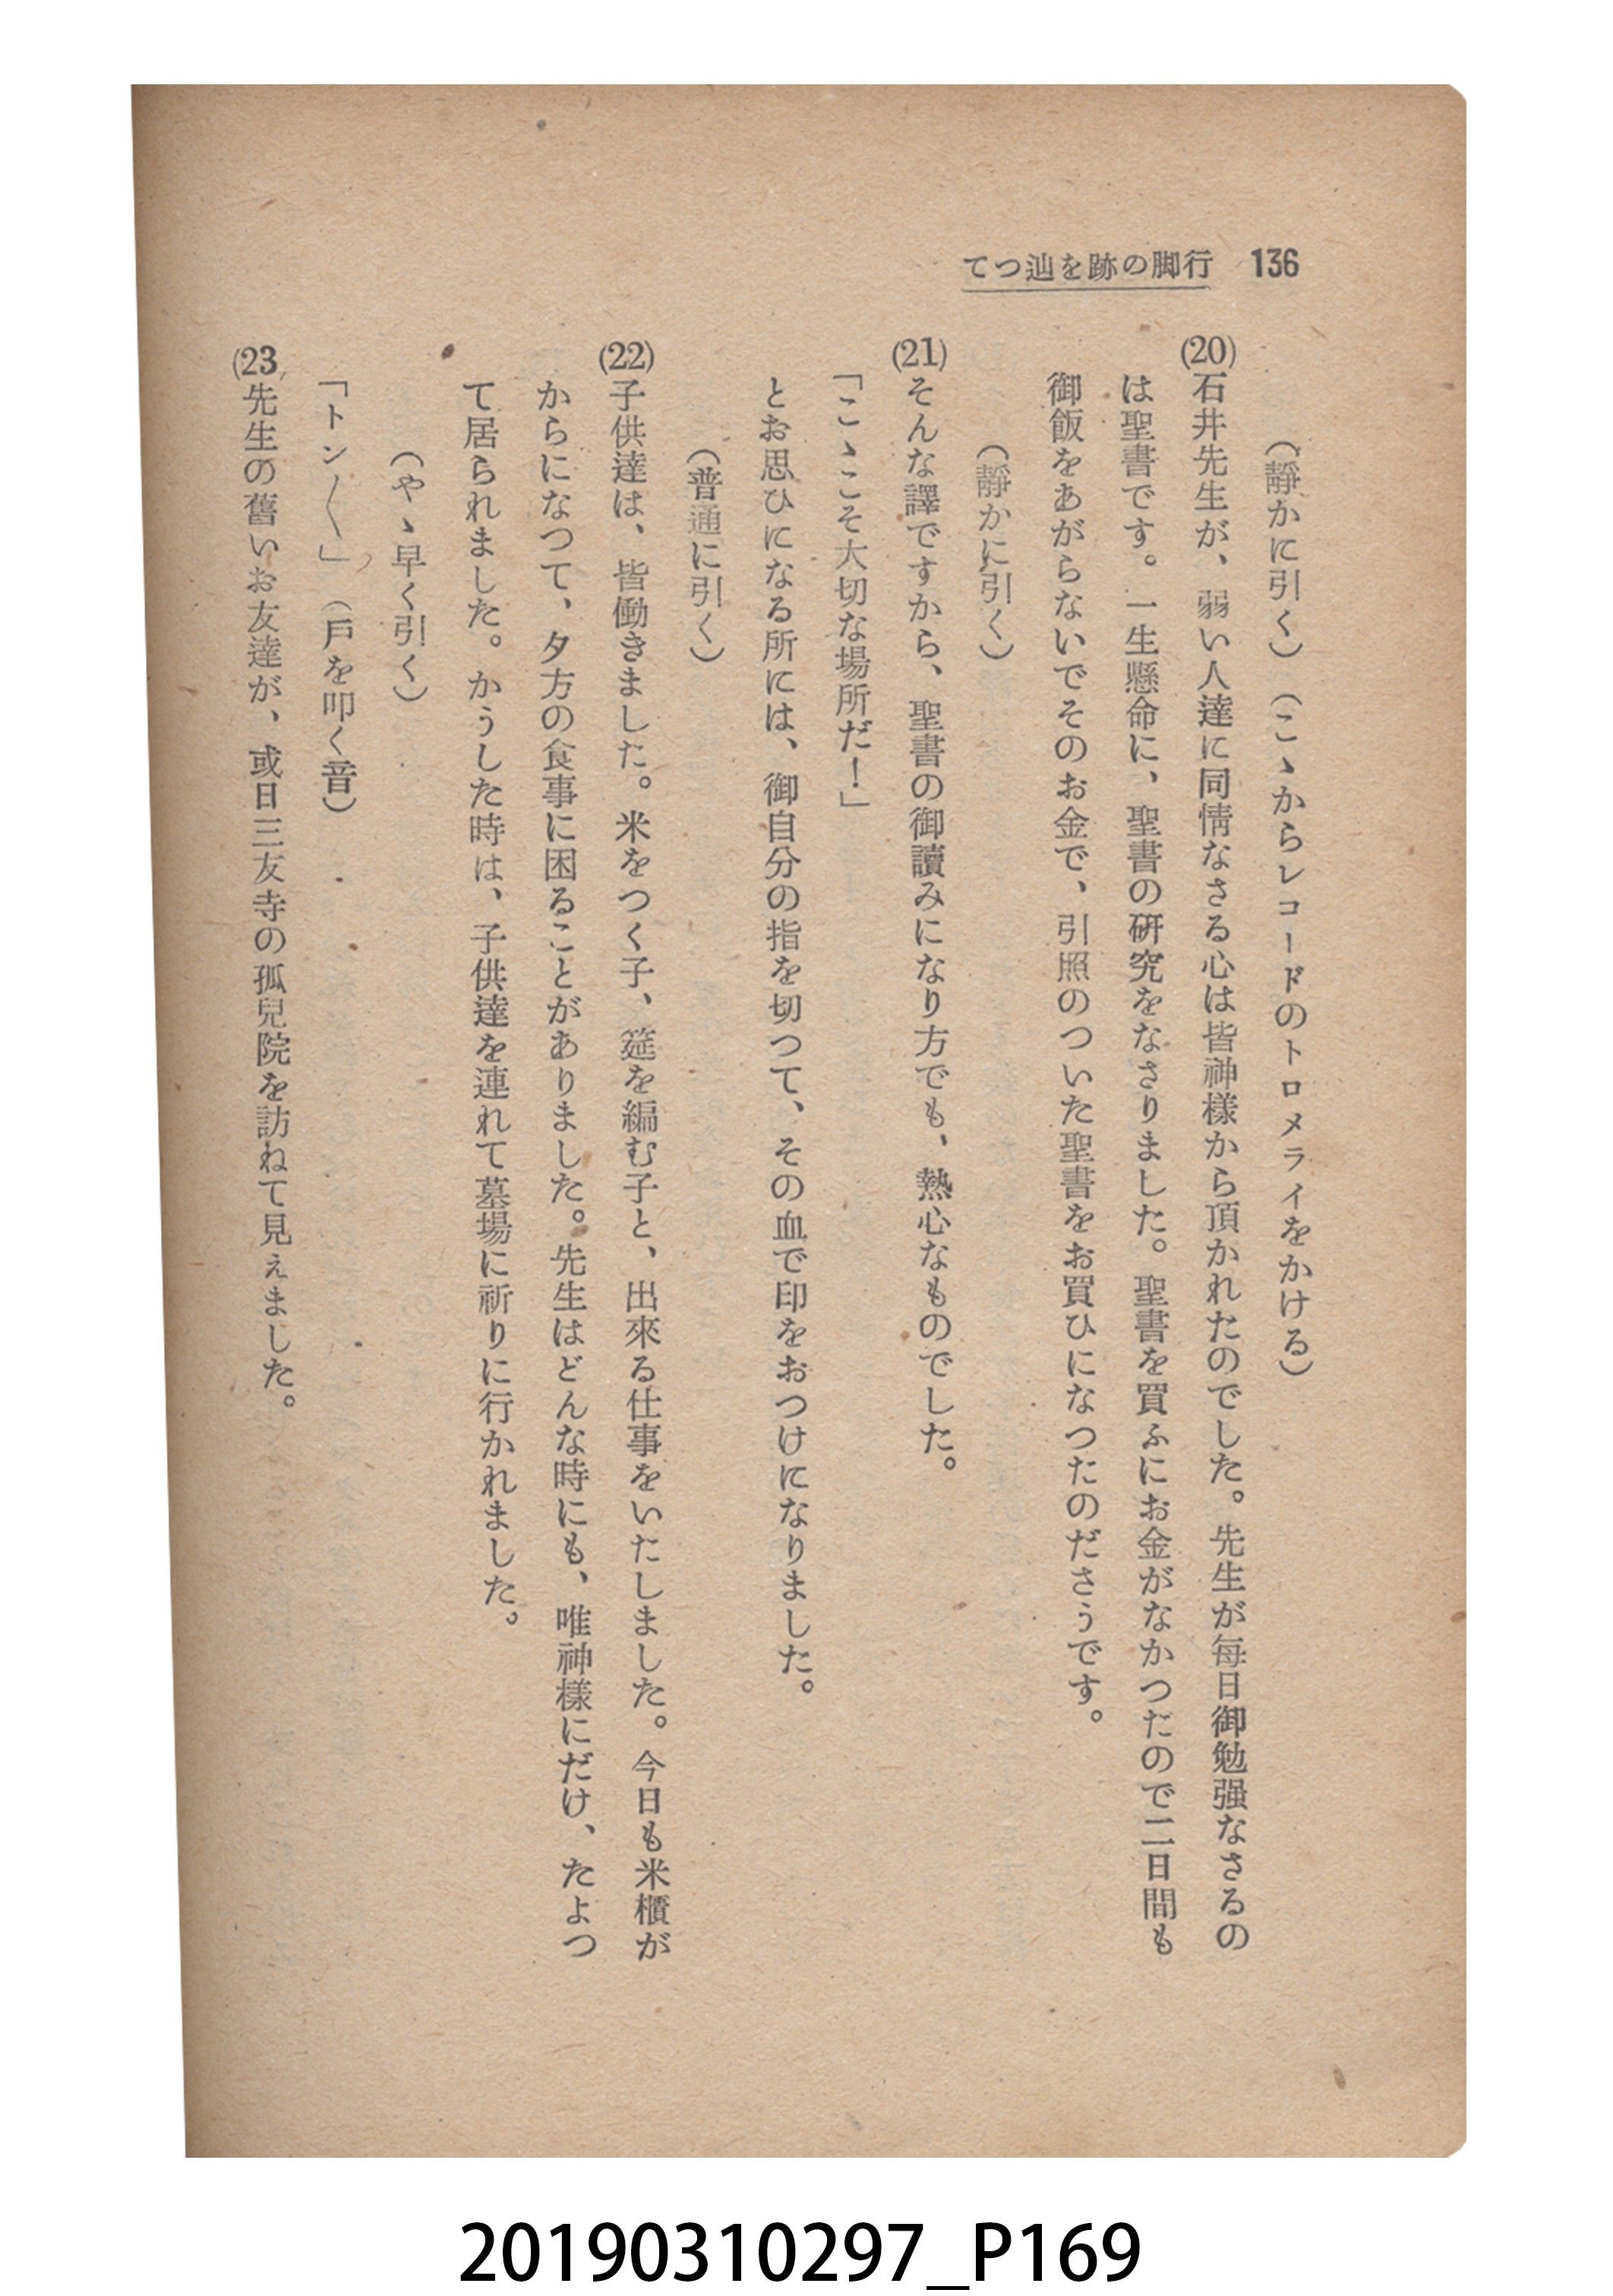 136 行脚の跡を辿つて
（靜かに引く）（こゝからレコードのトロメライをかける）
(20) 石井先生が、弱い人達に同情なさる心は皆神樣から頂かれたのでした。先生が每日御勉强なさるの
は聖書です。一生懸命に、聖書の硏究をなさりました。聖書を買ふにお金がなかつだので二日間も
御飯をあがらないでそのお金で、引照のついた聖書をお買ひになつたのださうです。
（靜かに引く）
(21) そんな譯ですから、聖書の御讀みになり方でも、熱心なものでした。
「こゝこそ大切な場所だ！」
とお思ひになる所には、御自分の指を切つて、その血で印をおつけになりました。
（普通に引く）
(22) 子供達は、皆働きました。米をつく子、筵を編む子と、出來る仕事をいたしました。今日も米櫃が
からになつて、夕方の食事に困ることがありました。先生はどんな時にも、唯神樣にだけ、たよつ
て居られました。かうした時は、子供達を連れて墓場に祈りに行かれました。
（やゝ早く引く）
「トン〱」（戶を叩く音）
(23) 先生の舊いお友達が、或日三友寺の孤兒院を訪ねて見ぇました。
20190310297_P169